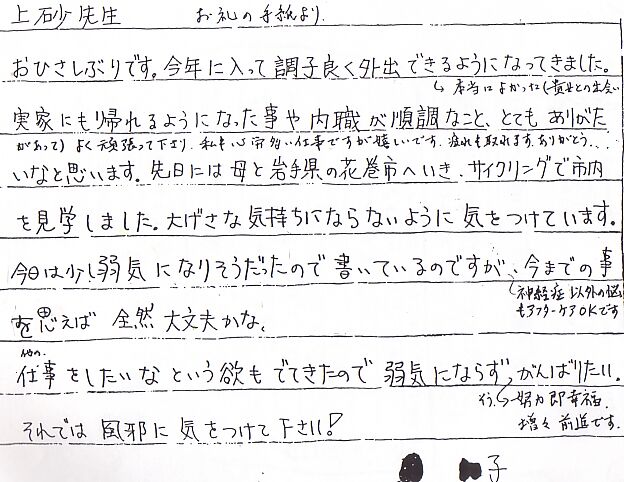 上砂先生 お礼の手紙より.
おひさしぶりです。今年に入って調子良く外出できるようになってきました。
本当によかったし貴女との出会い
実家にもり帰れるようになった事や内職が順調なこと、とてもありがた
があって) よく頑張って下さり、私も心労多い仕事ですが嬉しいです。疲れも取れます。ありがとう...
いなと思います。先日には母と岩手県の花巻市へいき、サイクリングで市内
を見学しました。大げさな気持ちにならないように気をつけています。
今日は少し弱気になりそうだったので書いているのですが、今までの事
神経症以外の悩
を思えば 全然 大丈夫かな。
もアフターケアOKです
他の.
仕事をしたいなという欲もでてきたので弱気にならず、がんばりたい。
努力即幸福.
それでは風邪に気をつけて下さい!
増々前進です.
子